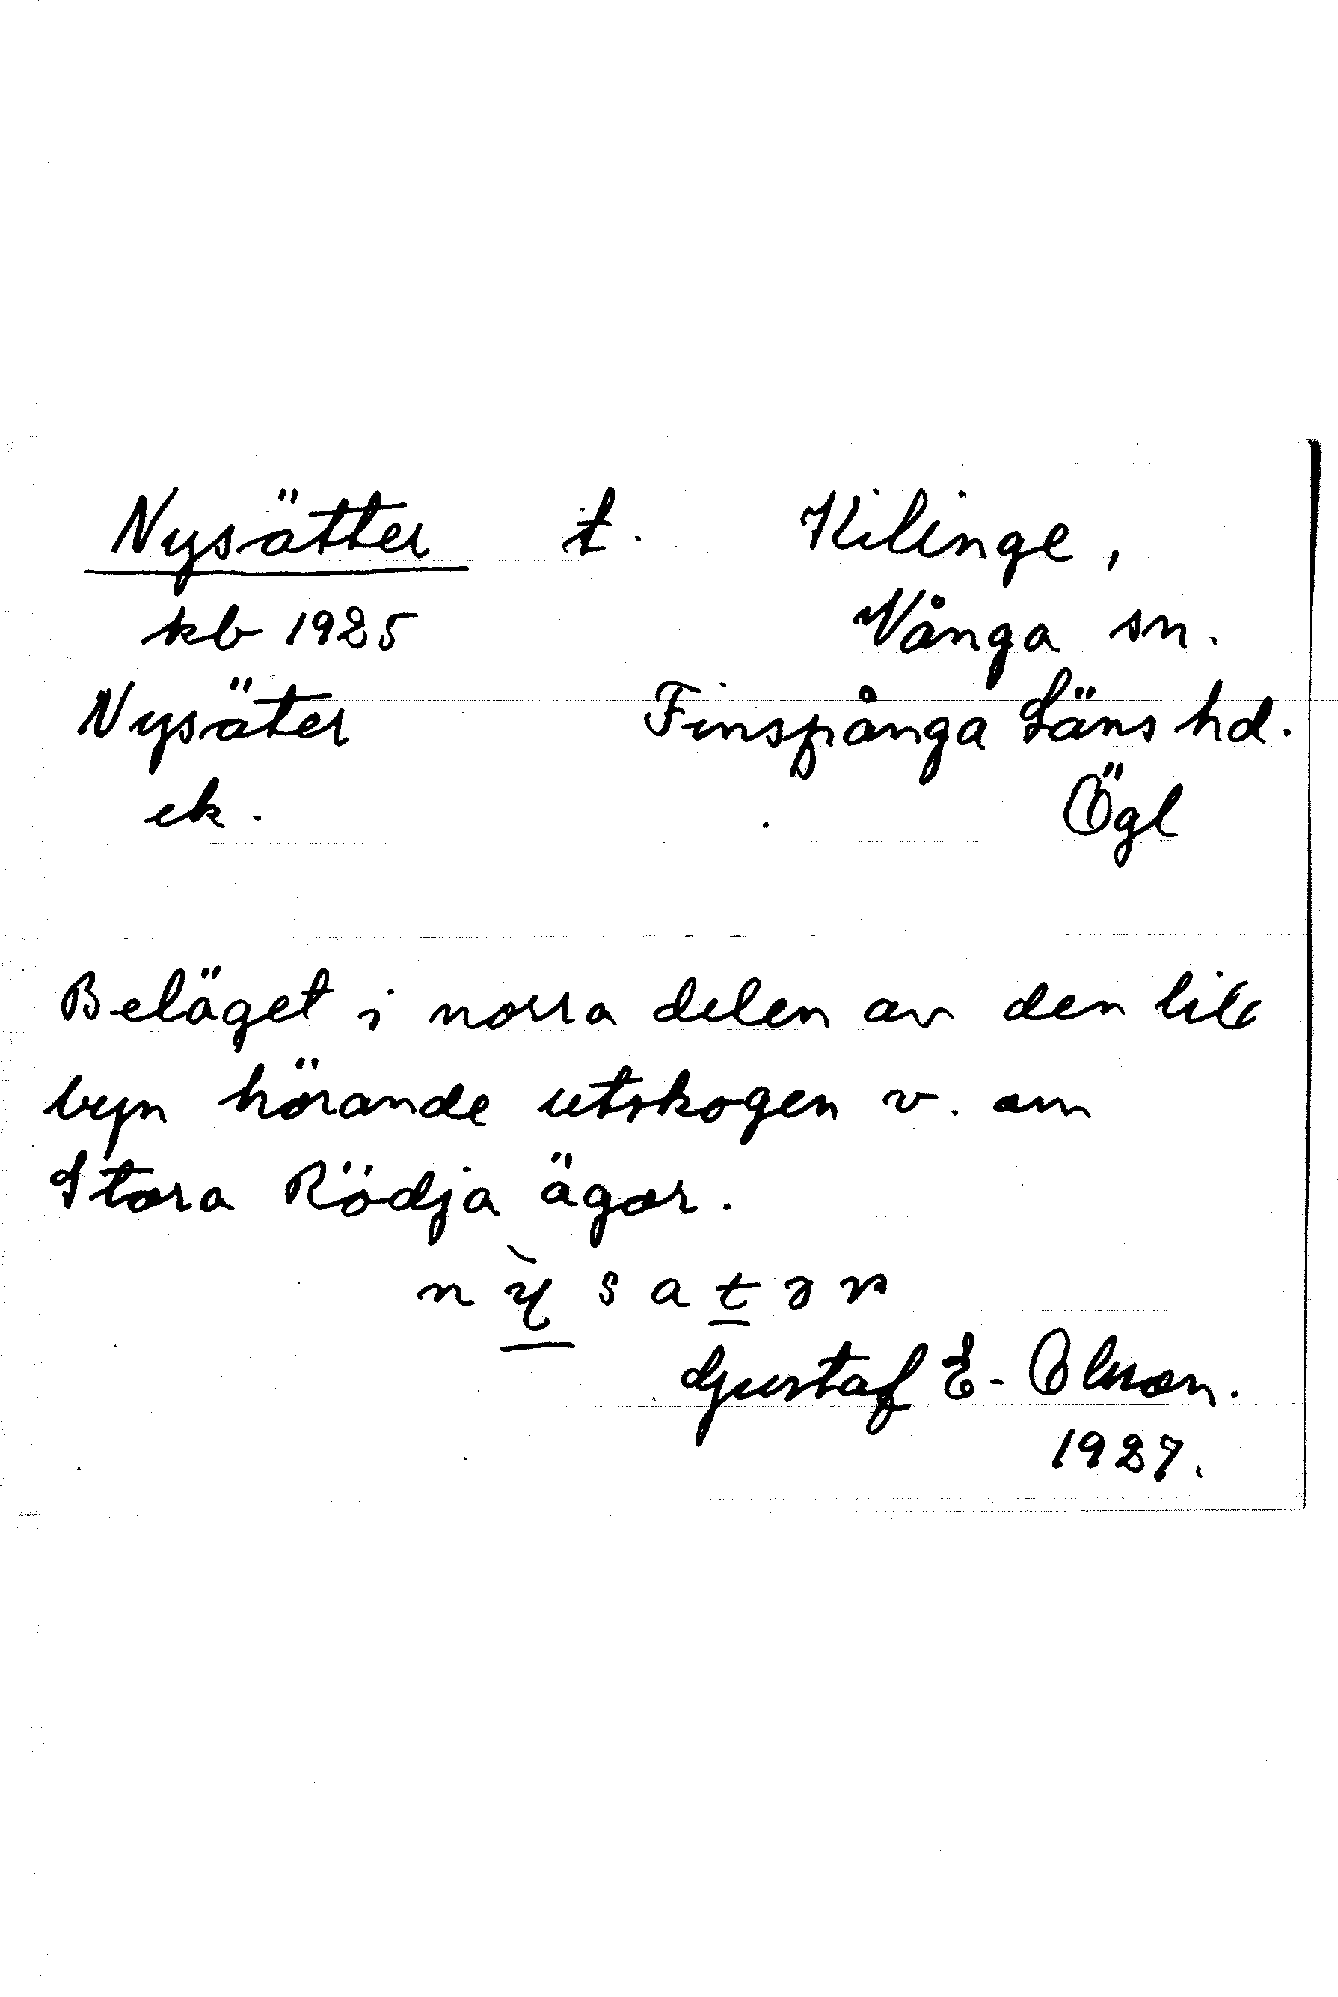 Nysätter t. Kilinge,
kb 1925 Vånga sn.
Nysäter Finspånga Läns hd.
ek. Ögl
Beläget i norra delen av den till
byn hörande utskogen v. om
Stora Rödja ägor.
nỳsatər
Gustaf E. Olsson.
1927.